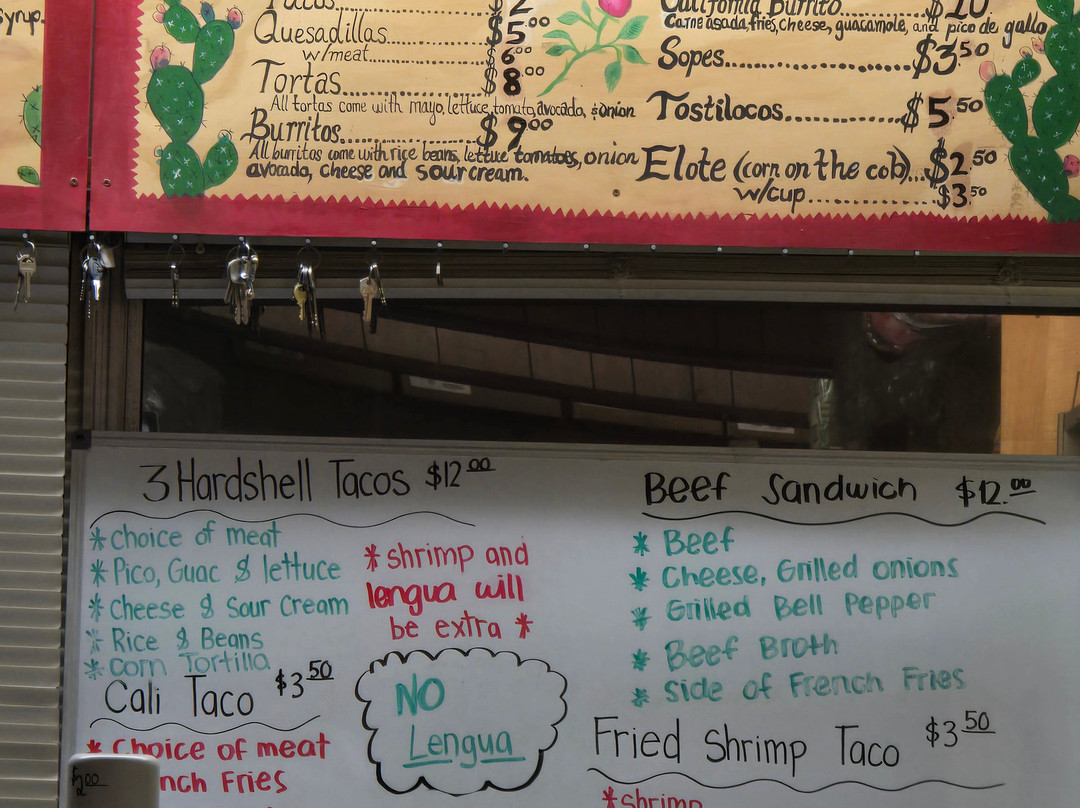 syrup.
Tacos
Quesadillas $5.00
w/meat $6.00
Tortas $8.00
All tortas come with mayo, lettuce, tomato, avocado, & onion
Burritos $9.00
All burritos come with rice beans, lettuce tomatoes, onion
avocado, cheese and sour cream.
California Burrito $10
Carne asada, fries, cheese, guacamole, and pico de gallo
Sopes $3.50
Tostilocos $5.50
Elote (corn on the cob) $2.50
w/cup $3.50
3 Hardshell Tacos $12.00
* Choice of meat
* Pico, Guac & lettuce
* Cheese & Sour Cream
* Rice & Beans
* Corn Tortilla
* shrimp and
lengua will
be extra *
Cali Taco $3.50
* Choice of meat
nch Fries
NO
Lengua
Beef Sandwich $12.00
* Beef
* Cheese, Grilled onions
* Grilled Bell Pepper
* Beef Broth
* Side of French Fries
Fried Shrimp Taco $3.50
* shrimp